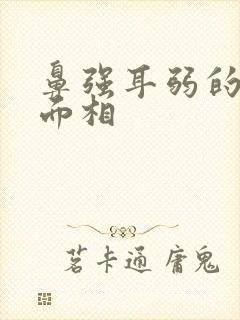 鼻强耳弱的
面相
茗卡通 庸鬼